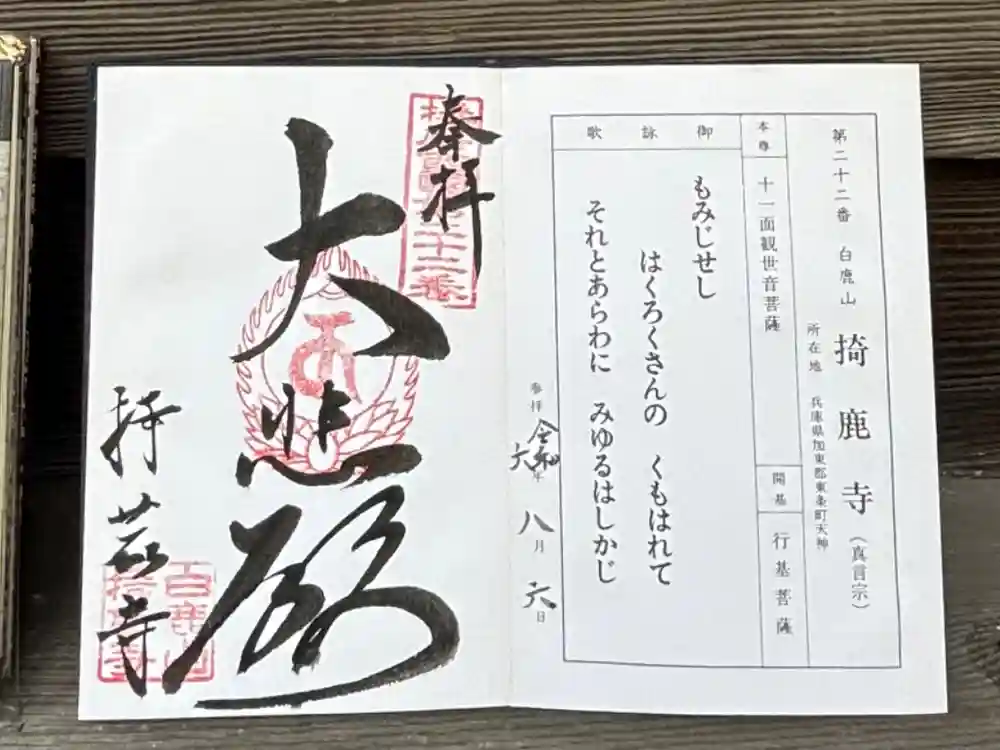 第二十二番 白鹿山 掎鹿寺 (真言宗)
所在地 兵庫県加東郡東条町天神
本尊 十一面観世音菩薩
開基 行基菩薩
御詠歌
もみじせし
はくろくさんの くもはれて
それとあらわに みゆるはしかじ
参拝 令和六年 八月 六日
奉拝
大悲殿
掎鹿寺
白鹿山